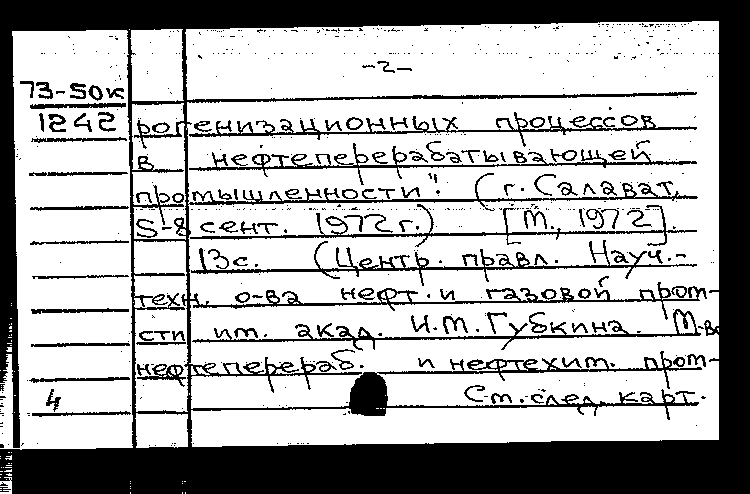 -2-
73-50к
1242 рогенизационных процессов
в нефтеперерабатывающей
промышленности". (г. Салават,
5-8 сент. 1972 г.) [М., 1972].
13с. (Центр. правл. Науч.-
техн. о-ва нефт. и газовой пром-
сти им. акад. И.М. Губкина. М-во
нефтеперераб. и нефтехим. пром-
4 См. след. карт.